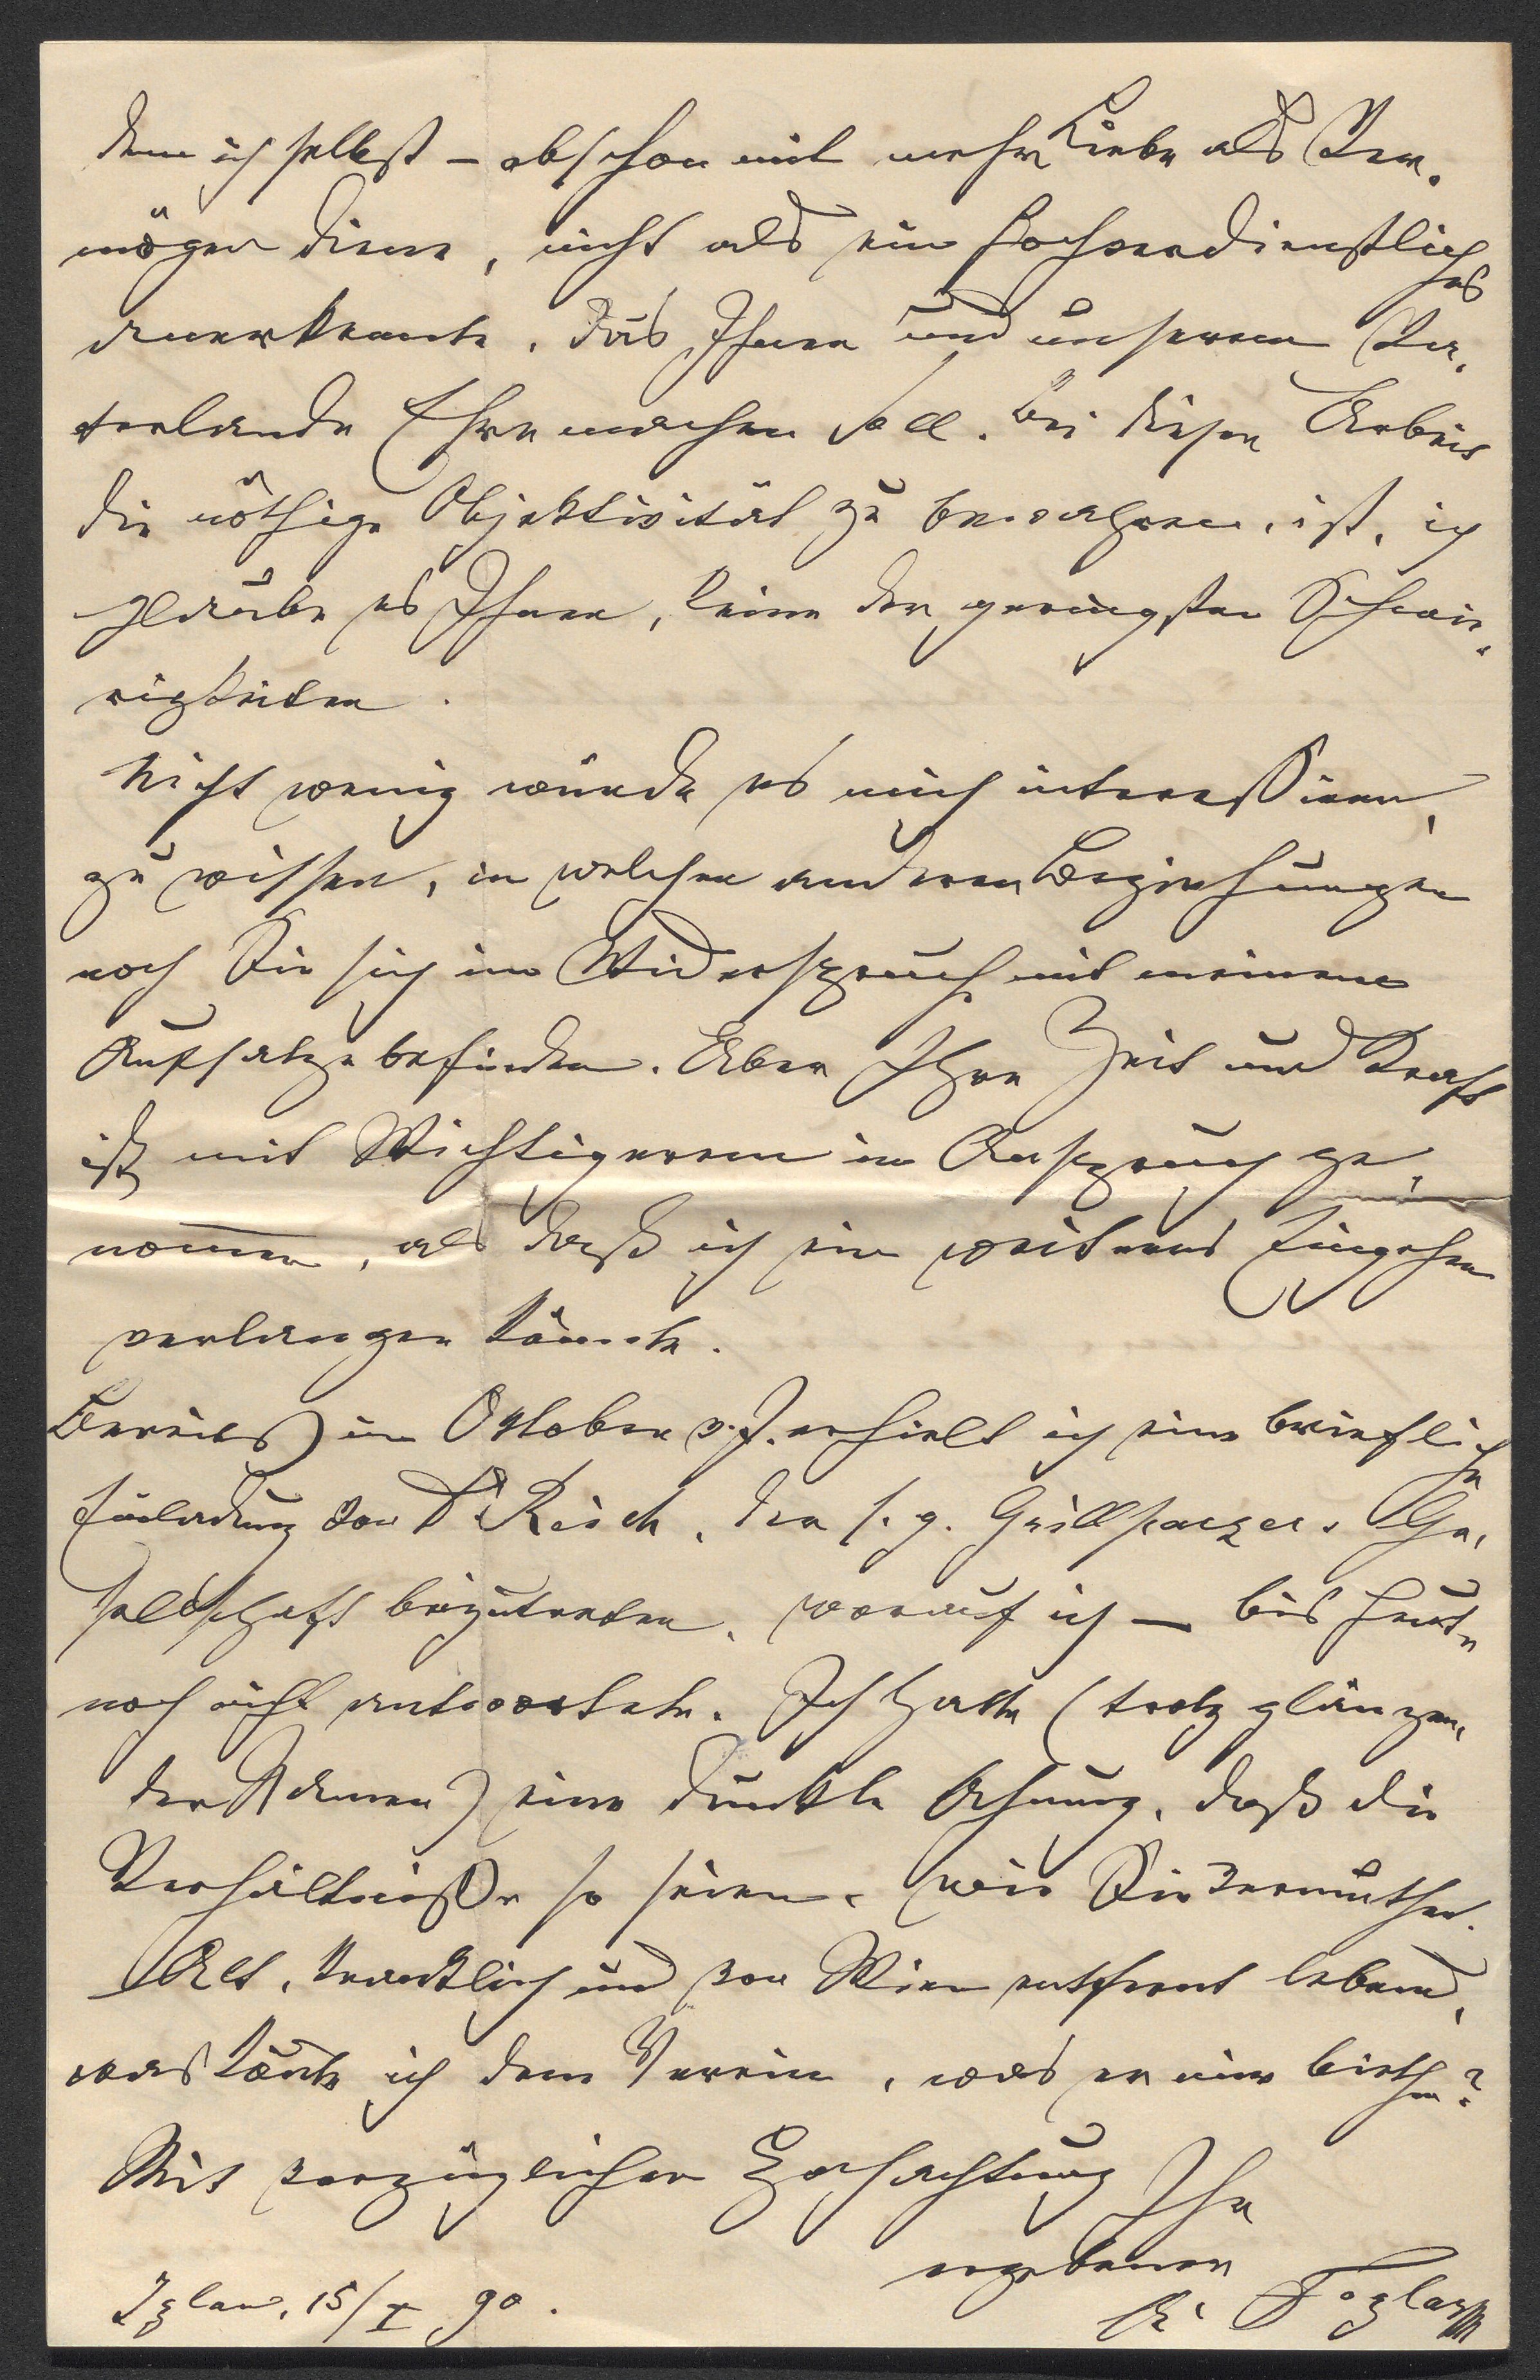 dem ich selbst – obschon mit mehr Liebe als Ver-
mögen diene, nicht als ein hochverdienstliches
anerkennte, das Ihnen und unserem Va-
terlande Ehre machen soll. Bei dieser Arbeit
die nöthige Objektivität zu bewahren, ist, ich
glaube es Ihnen, keine der geringsten Schwie-
rigkeiten.
Nicht wenig würde es mich interessiren,
zu wissen, in welchen anderen Beziehungen
noch Sie sich im Widerspruch mit meinem
Aufsatze befinden. Aber Ihre Zeit und Kraft
ist mit Wichtigerem in Anspruch ge-
nommen, als daß ich ein weiteres Eingehen
verlangen könnte.
Bereits im Oktober v. J. erhielt ich eine briefliche
Einladung von Dr Reich, der s. g. Grillparzer-Ge-
sellschaft beizutreten, worauf ich – bis heute
noch nicht antwortete. Ich hatte (trotz glänzen-
der Namen) eine dunkle Ahnung, daß die
Verhältniße so seien, wie Sie vermuthen.
Alt, kränklich und von Wien entfernt lebend,
was könnte ich dem Verein, was er mir biethen?
Mit vorzüglicher Hochachtung Ihr
ergebener
Foglar
Iglau, 15/I 90.